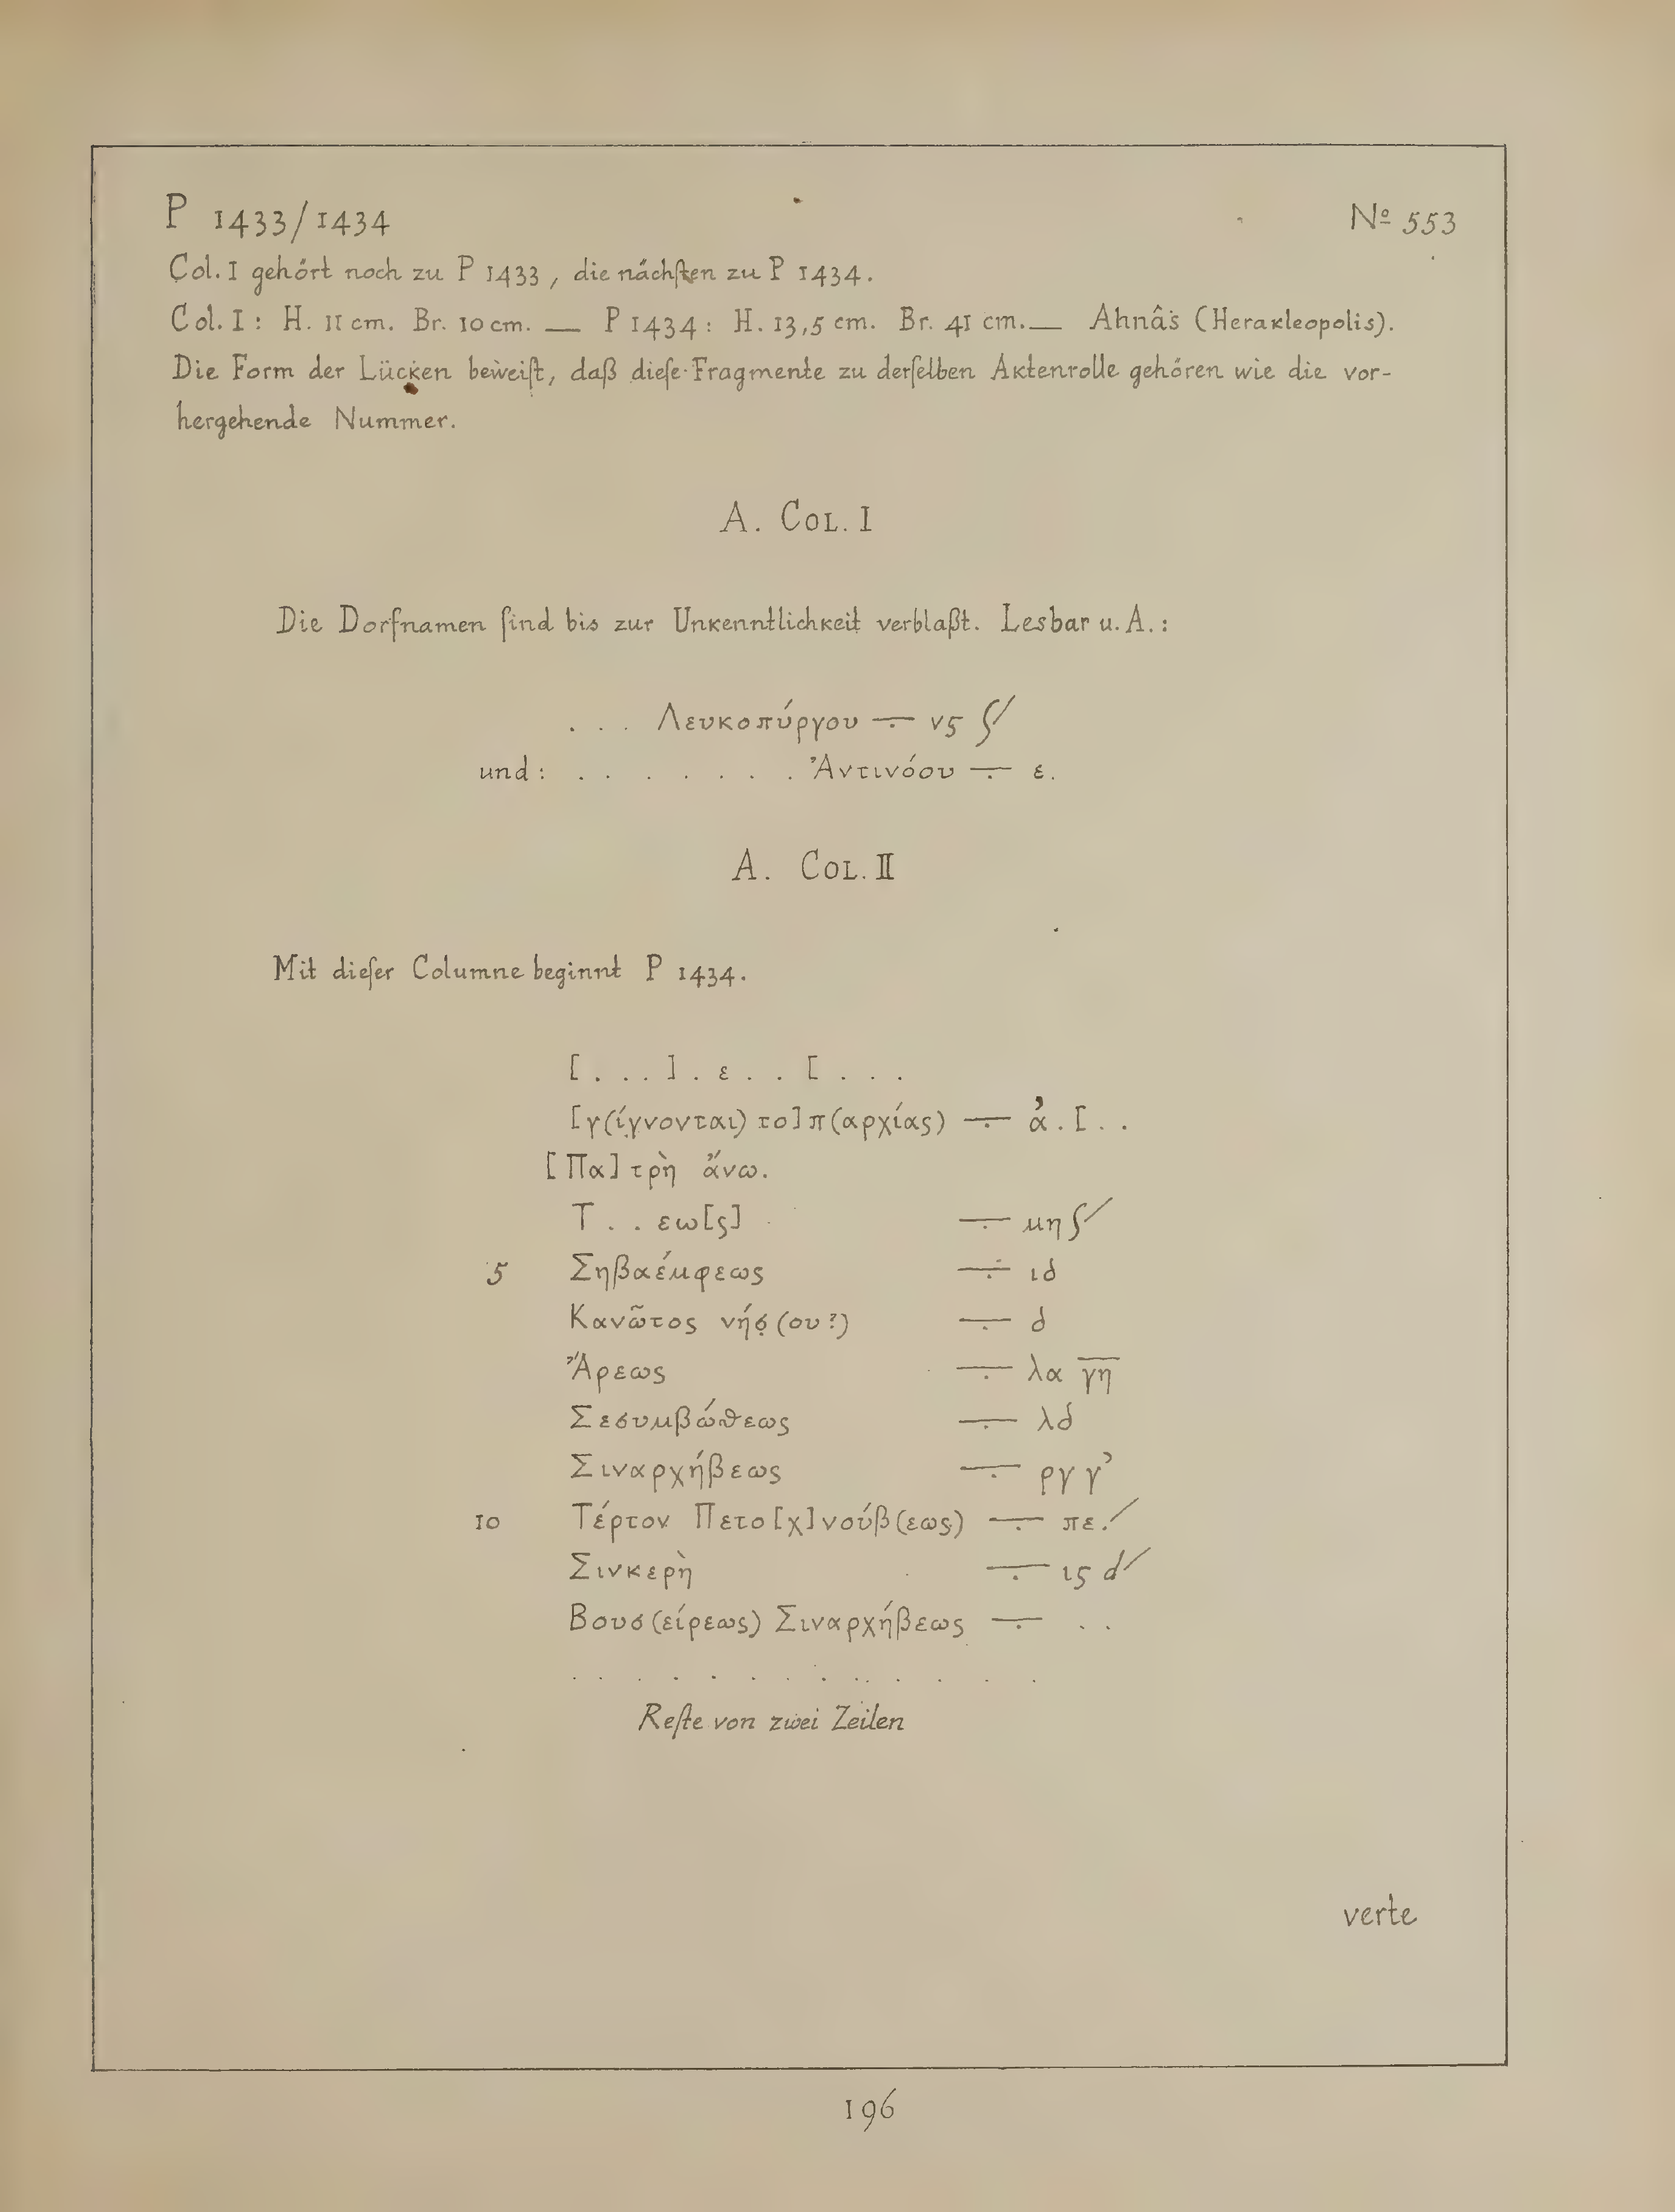 P 1433/1434
Nº 553
Col. I gehört noch zu P 1433, die nächſten zu P 1434.
Col. I: H. 11 cm. Br. 10 cm. — P 1434: H. 13,5 cm. Br. 41 cm. — Ahnâs (Herakleopolis).
Die Form der Lücken beweiſt, daß dieſe Fragmente zu derſelben Aktenrolle gehören wie die vor-
hergehende Nummer.
A. COL. I
Die Dorfnamen ſind bis zur Unkenntlichkeit verblaßt. Lesbar u. A.:
. . . Λευκοπύργου ⨪ νϛ ʃ/
und: . . . . . . . . Ἀντινόου ⨪ ε.
A. COL. II
Mit dieſer Columne beginnt P 1434.
[. . .] . ε . . [ . . .
[γ(ίγνονται) το]π(αρχίας) ⨪ ἀ . [ . .
[Πα]τρὴ ἄνω.
Τ . . εω[ς] ⨪ μη ʃ/
5 Σηβαέμφεως ⨪ ιδ
Κανῶτος νήσ̣(ου?) ⨪ δ
Ἄρεως ⨪ λα γ̅η̅
Σεσυμβώθεως ⨪ λδ
Σιναρχήβεως ⨪ ργ γ’
10 Τέρτον Πετο[χ]νούβ(εως) ⨪ πε./
Σινκερὴ ⨪ ιϛ d/
Βουσ(είρεως) Σιναρχήβεως ⨪ . .
. . . . . . . . . . . . .
Reſte von zwei Zeilen
verte
196